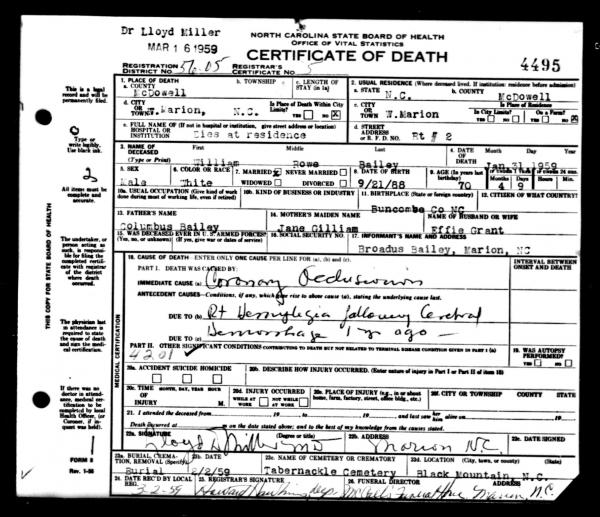 Dr Lloyd Miller
MAR 16 1959
NORTH CAROLINA STATE BOARD OF HEALTH
OFFICE OF VITAL STATISTICS
CERTIFICATE OF DEATH
4495
REGISTRATION DISTRICT NO. 56-05 REGISTRAR'S CERTIFICATE NO. 5
1. PLACE OF DEATH
a. COUNTY McDowell
b. TOWNSHIP
c. LENGTH OF STAY (in 1a)
2. USUAL RESIDENCE (Where deceased lived. If institution: residence before admission)
a. STATE N.C. b. COUNTY McDowell
d. CITY OR TOWN W. Marion, N.C. Is Place of Death Within City Limits? YES NO
c. CITY OR TOWN W.Marion Is Place of Residence In City Limits? On a Farm? YES NO YES NO
e. FULL NAME OF (If not in hospital or institution, give street address or location) HOSPITAL OR INSTITUTION Dies at residence
d. STREET ADDRESS OR R. F. D. NO. Rt # 2
3. NAME OF DECEASED (Type or Print) First Middle Last
William Rowe Bailey
4. DATE OF DEATH Month Day Year
Jan.31,1959
5. SEX Male
6. COLOR OR RACE White
7. MARRIED NEVER MARRIED WIDOWED DIVORCED
8. DATE OF BIRTH 9/21/88
9. AGE (In years last birthday) 70 IF UNDER 1 YEAR Months 4 Days 9 IF UNDER 24 HRS. Hours Min.
10a. USUAL OCCUPATION (Give kind of work done during most of working life, even if retired)
10b. KIND OF BUSINESS OR INDUSTRY
11. BIRTHPLACE (State or foreign country) Buncombe Co NC
12. CITIZEN OF WHAT COUNTRY?
13. FATHER'S NAME Columbus Bailey
14. MOTHER'S MAIDEN NAME Jane Gilliam
NAME OF HUSBAND OR WIFE Effie Grant
15. WAS DECEASED EVER IN U. S. ARMED FORCES? (Yes, no, or unknown) (If yes, give war or dates of service)
16. SOCIAL SECURITY NO.
17. INFORMANT'S NAME AND ADDRESS Broadus Bailey, Marion, NC
18. CAUSE OF DEATH—ENTER ONLY ONE CAUSE PER LINE FOR (a), (b), and (c)
INTERVAL BETWEEN ONSET AND DEATH
PART I. DEATH WAS CAUSED BY:
IMMEDIATE CAUSE (a) Coronary Occlusion
ANTECEDENT CAUSES—Conditions, if any, which gave rise to above cause (a), stating the underlying cause last.
DUE TO (b) Rt Hemiplegia following Cerebral
DUE TO (c) Hemorrhage 1 yr ago —
PART II. OTHER SIGNIFICANT CONDITIONS CONTRIBUTING TO DEATH BUT NOT RELATED TO TERMINAL DISEASE CONDITION GIVEN IN PART I (a)
4201
19. WAS AUTOPSY PERFORMED? YES NO
20a. ACCIDENT SUICIDE HOMICIDE
20b. DESCRIBE HOW INJURY OCCURRED. (Enter nature of injury in Part I or Part II of item 18)
20c. TIME OF INJURY MONTH, DAY, YEAR HOUR M.
20d. INJURY OCCURRED WHILE AT WORK NOT WHILE AT WORK
20e. PLACE OF INJURY (e.g., in or about home, farm, factory, street, office bldg., etc.)
20f. CITY OR TOWNSHIP COUNTY STATE
21. I attended the deceased from , 19 , to , 19 and last saw her him alive on , 19
Death occurred at m on the date stated above; and to the best of my knowledge from the causes stated.
22a. SIGNATURE Lloyd D Miller MD (Degree or title)
22b. ADDRESS Marion NC.
22c. DATE SIGNED
23a. BURIAL, CREMATION, REMOVAL (Specify) Burial
23b. DATE 2/2/59
23c. NAME OF CEMETERY OR CREMATORY Tabernackle Cemetery
23d. LOCATION (City, town, or county) (State) Black Mountain, N.C.
24. DATE REC'D BY LOCAL REG. 3-2-59
25. REGISTRAR'S SIGNATURE
26. FUNERAL DIRECTOR ADDRESS McCall's Funeral Home Marion, N.C.
This is a legal record and will be permanently filed.
Type or write legibly. Use black ink.
2
All items must be complete and accurate.
The undertaker, or person acting as such, is responsible for filing the completed certificate with registrar of the district where death occurred.
The physician last in attendance is required to state the cause of death and sign the medical certification.
If there was no doctor in attendance, medical certification to be completed by local Health Officer, (or Coroner, if inquest was held.)
FORM 8
Rev. 1-56
THIS COPY FOR STATE BOARD OF HEALTH
MEDICAL CERTIFICATION